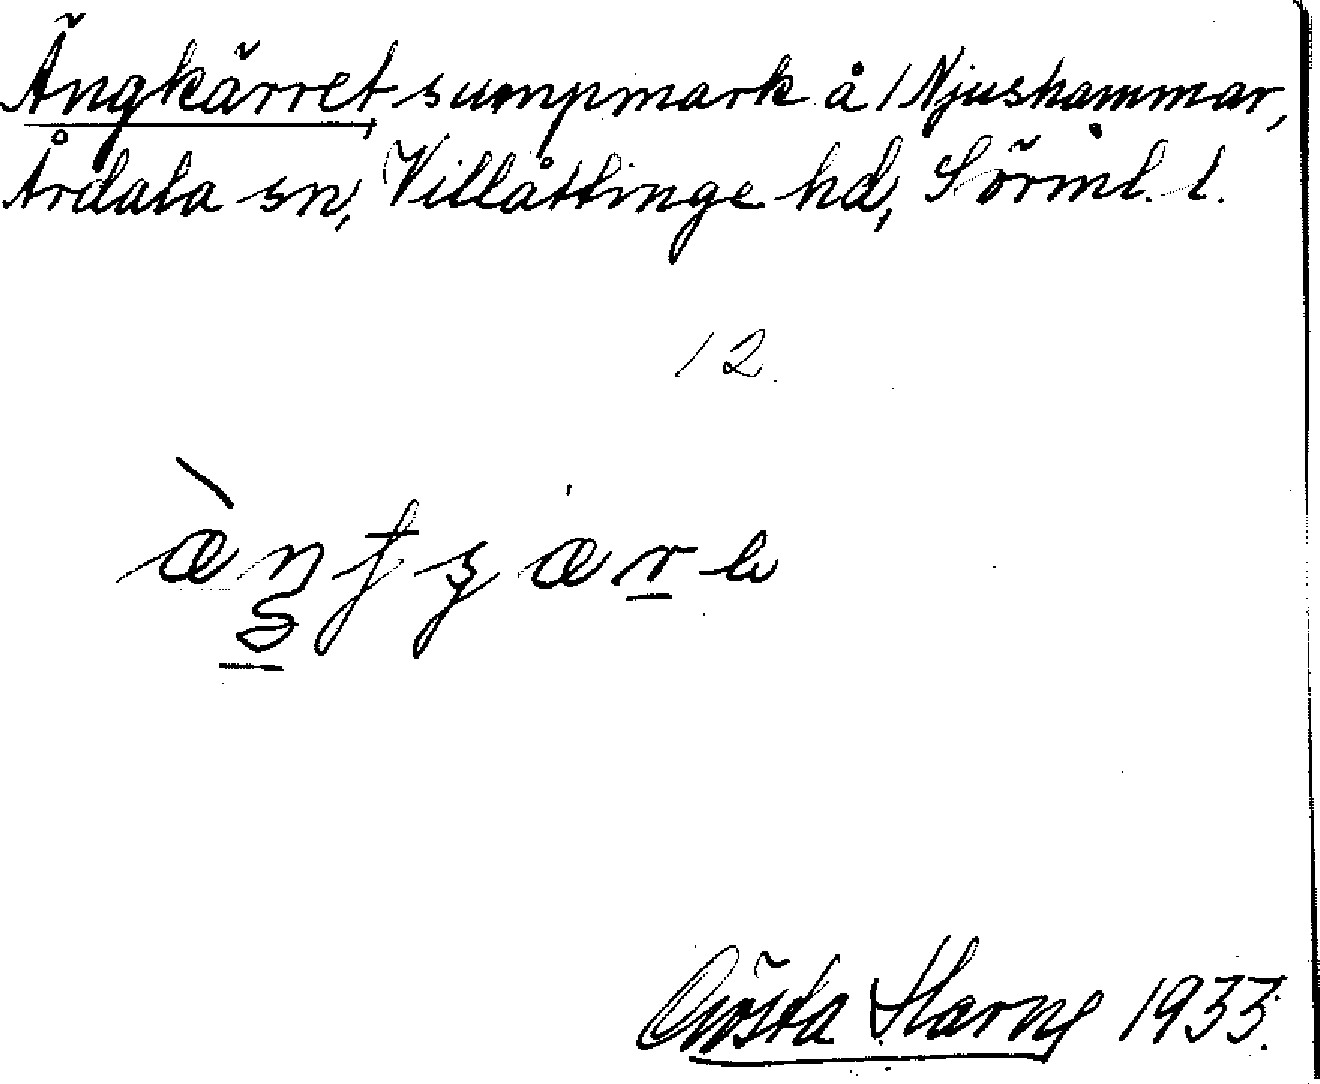 Ängkärret, sumpmark å Njushammar,
Årdala sn, Villåttinge hd, Sörml. l.
12.
Gösta Harng 1933.